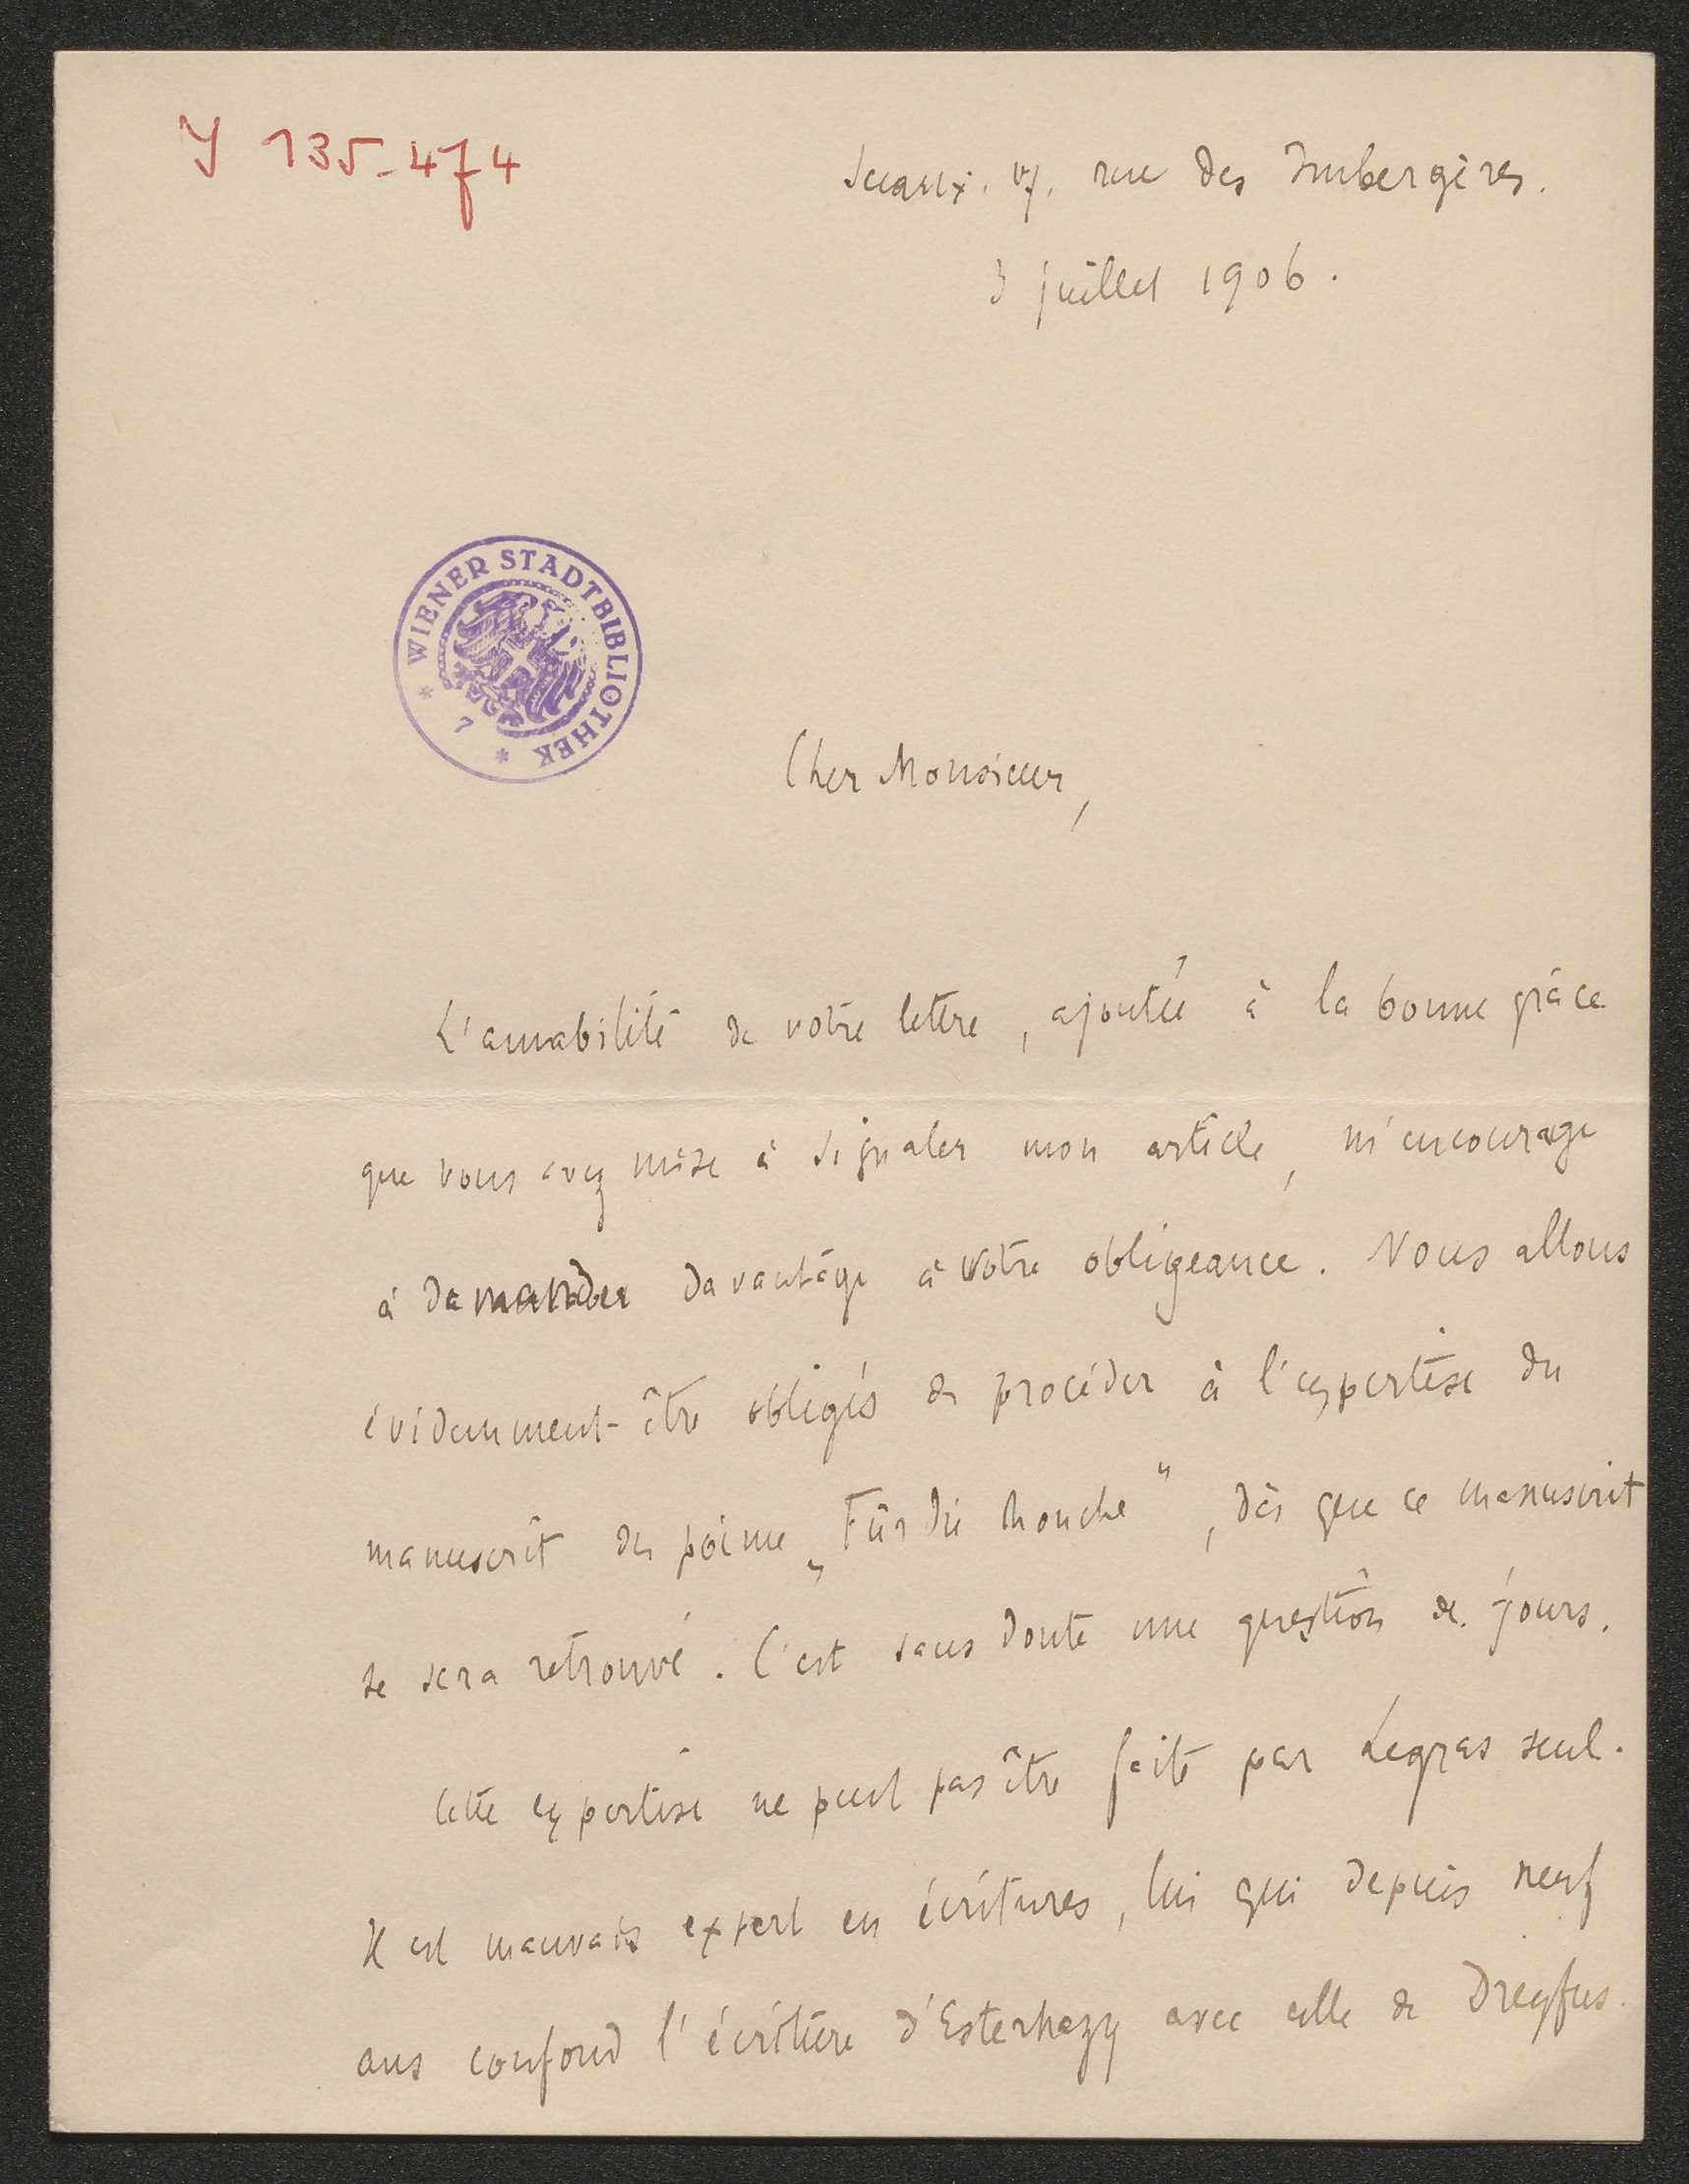 Y 135-474
Sceaux. 17. rue des Imbergères.
3 juillet 1906.
WIENER STADTBIBLIOTHEK
* 7 *
Cher Monsieur,
L'amabilité de votre lettre, ajoutée à la bonne grâce
que vous avez mise à signaler mon article, m'encourage
à demander davantage à votre obligeance. Nous allons
évidemment être obligés de procéder à l'expertise du
manuscrit du poème „Für die Mouche“, dès que ce manuscrit
se sera retrouvé. C'est sans doute une question de jours.
Cette expertise ne peut pas être faite par Legras seul.
Il est mauvais expert en écritures, lui qui depuis neuf
ans confond l'écriture d'Esterhazy avec celle de Dreyfus.